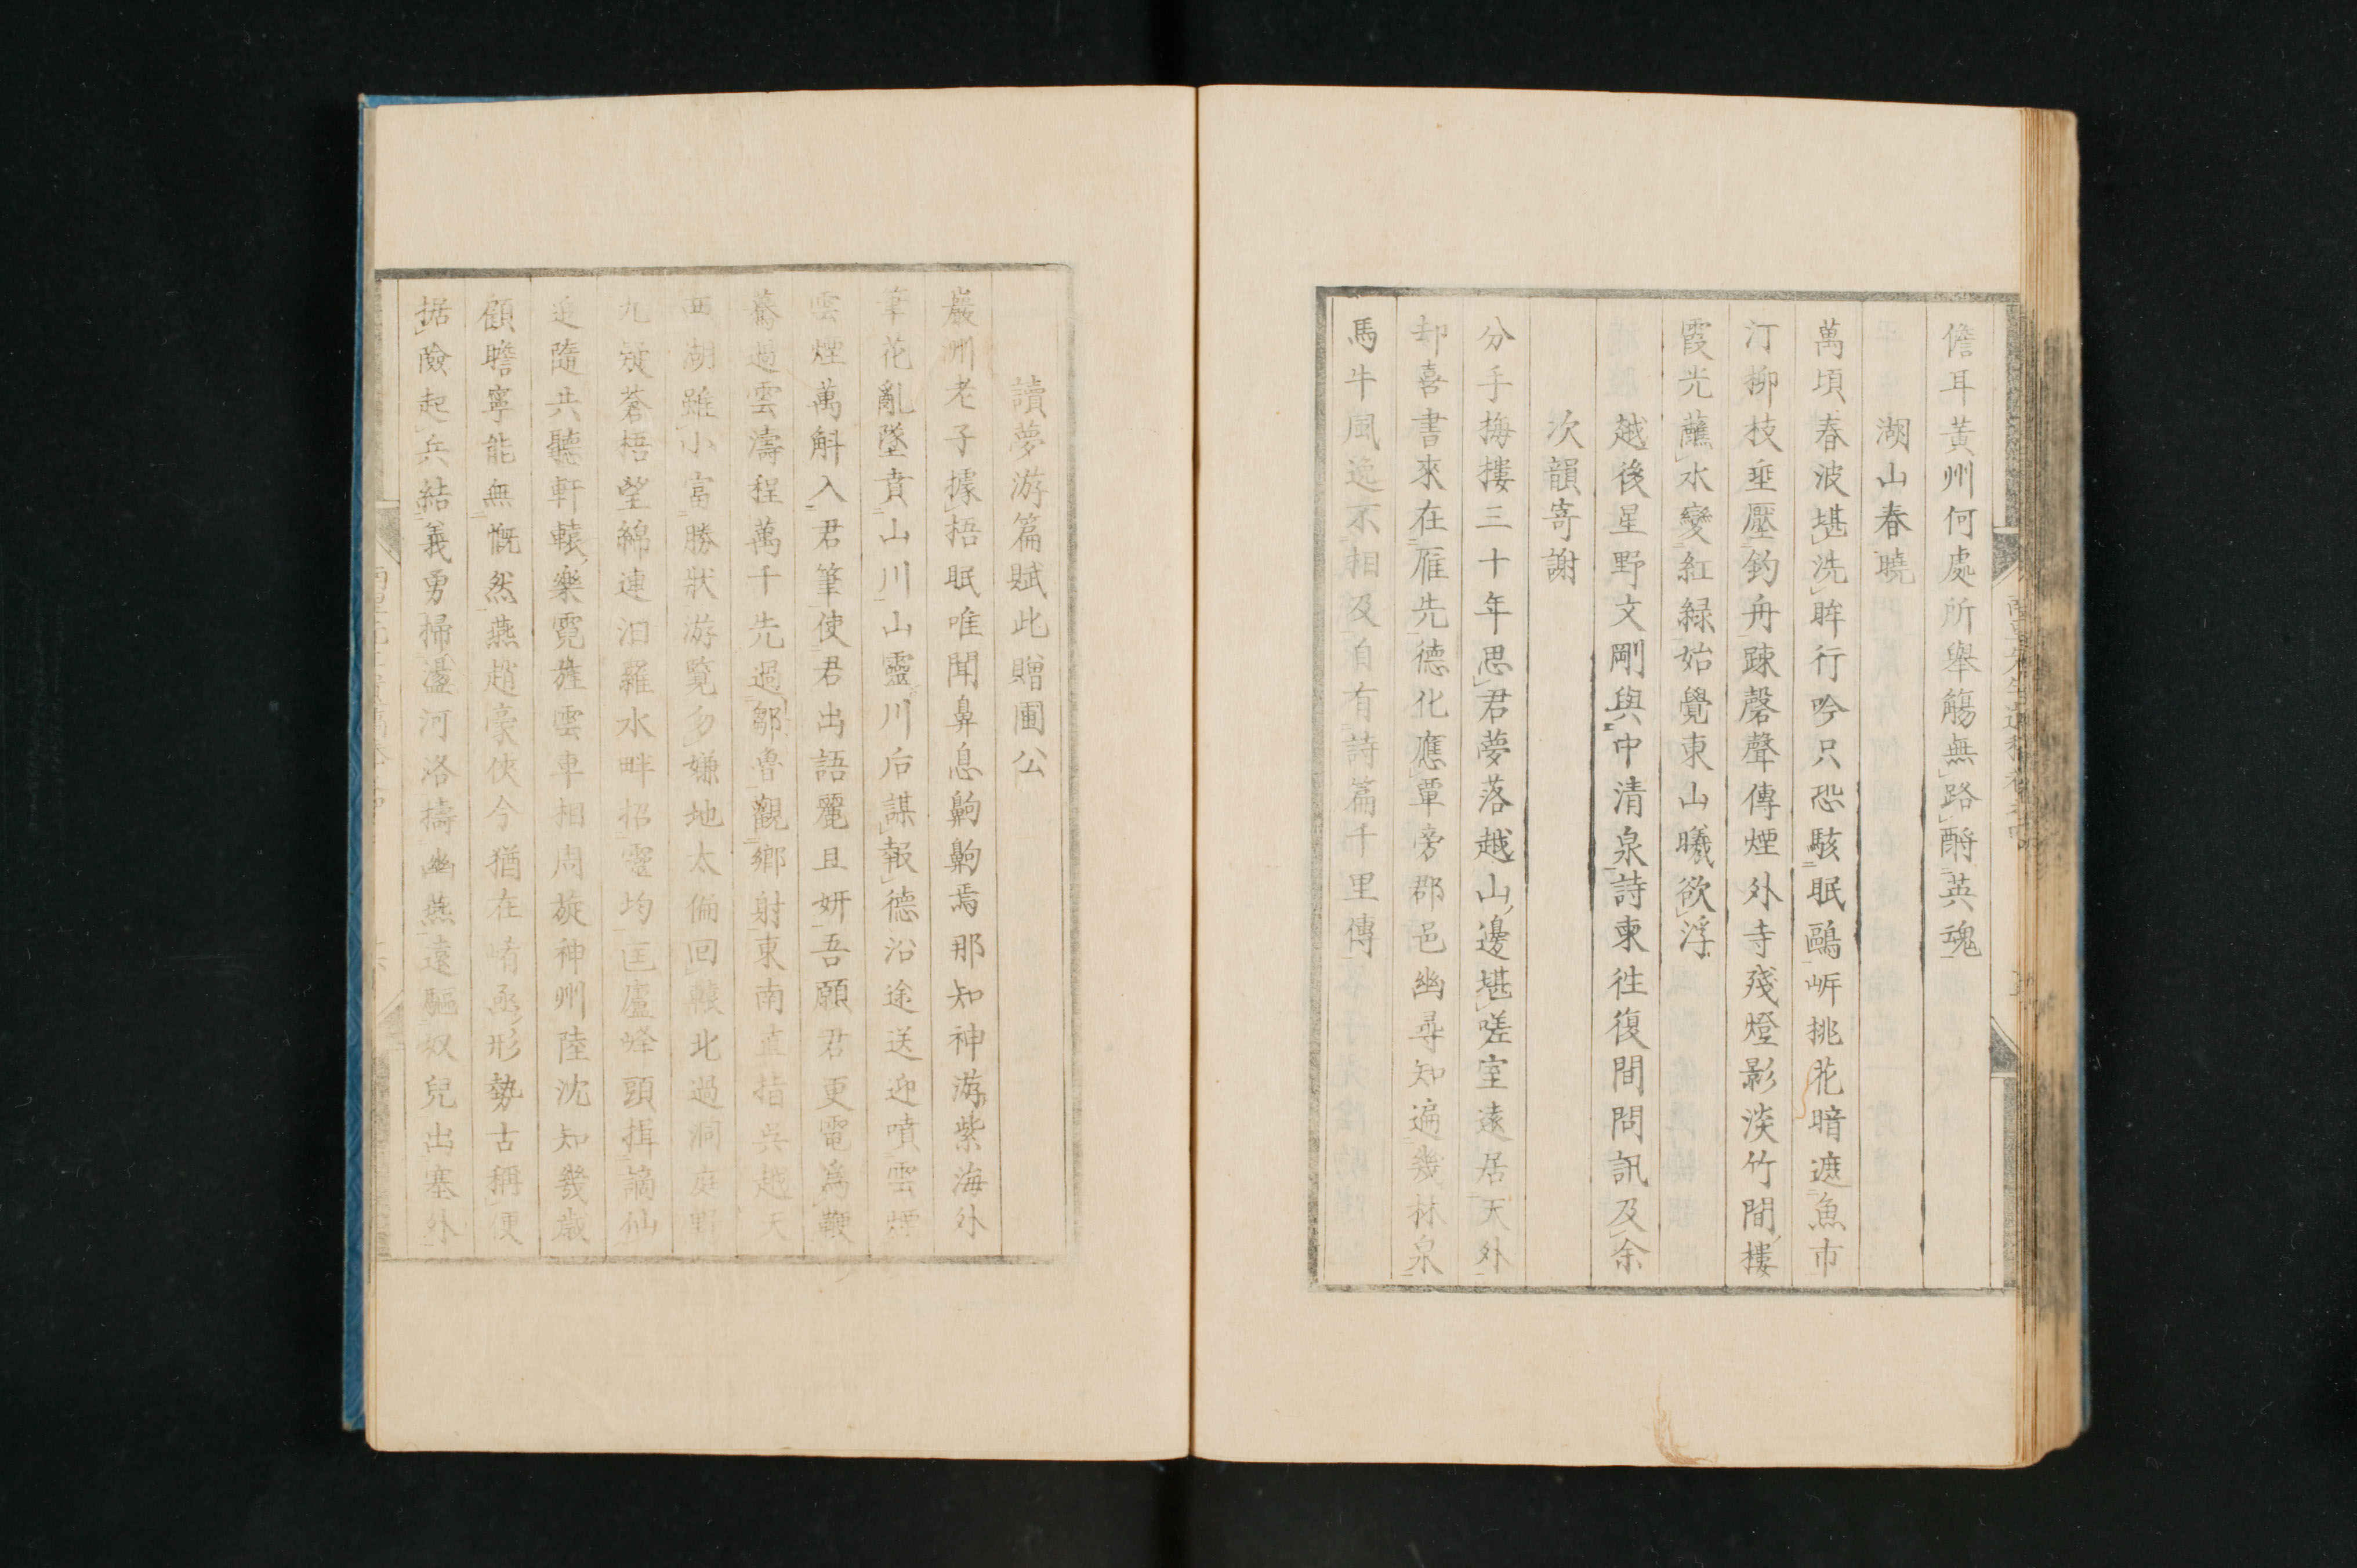 儋耳黃州何處所舉觴無路酹英魂
湖山春曉
萬頃春波堪洗眸行吟只恐駭眠鷗岍挑花暗遮魚市
汀柳枝垂壓釣舟踈磬聲傳煙外寺殘燈影淡竹間摟
霞光蘸水變紅緑始覺東山曦欲浮
越後星野文剛與中清泉詩柬徃復間問訊及余
次韻寄謝
分手梅摟三十年思君夢落越山邊堪嗟室遠居天外
却喜書來在雁先德化應覃旁郡邑幽尋知遍幾林泉
馬牛風逸不相及自有詩篇千里傳
讀夢游篇賦此贈圃公
巖洲老子據梧眠唯聞鼻息齁齁焉那知神游紫海外
筆花亂墜賁山川山靈川后謀報德沿途送迎噴雲煙
雲煙萬斛入君筆使君出語麗且妍吾願君更電爲鞭
驀過雲濤程萬千先過鄒魯觀鄉射東南直指吳越天
西湖雖小富勝狀游覧勿嫌地太偏回轅北過洞庭野
九疑蒼梧望綿連汨羅水畔招靈均匡廬峰頭揖謫仙
追隨共聽軒轅樂霓旌雲車相周旋神州陸沈知幾歳
顧瞻寧能無慨然燕趙豪俠今猶在崤函形勢古稱便
据險起兵結義勇掃盪河洛擣幽燕遠驅奴兒出塞外